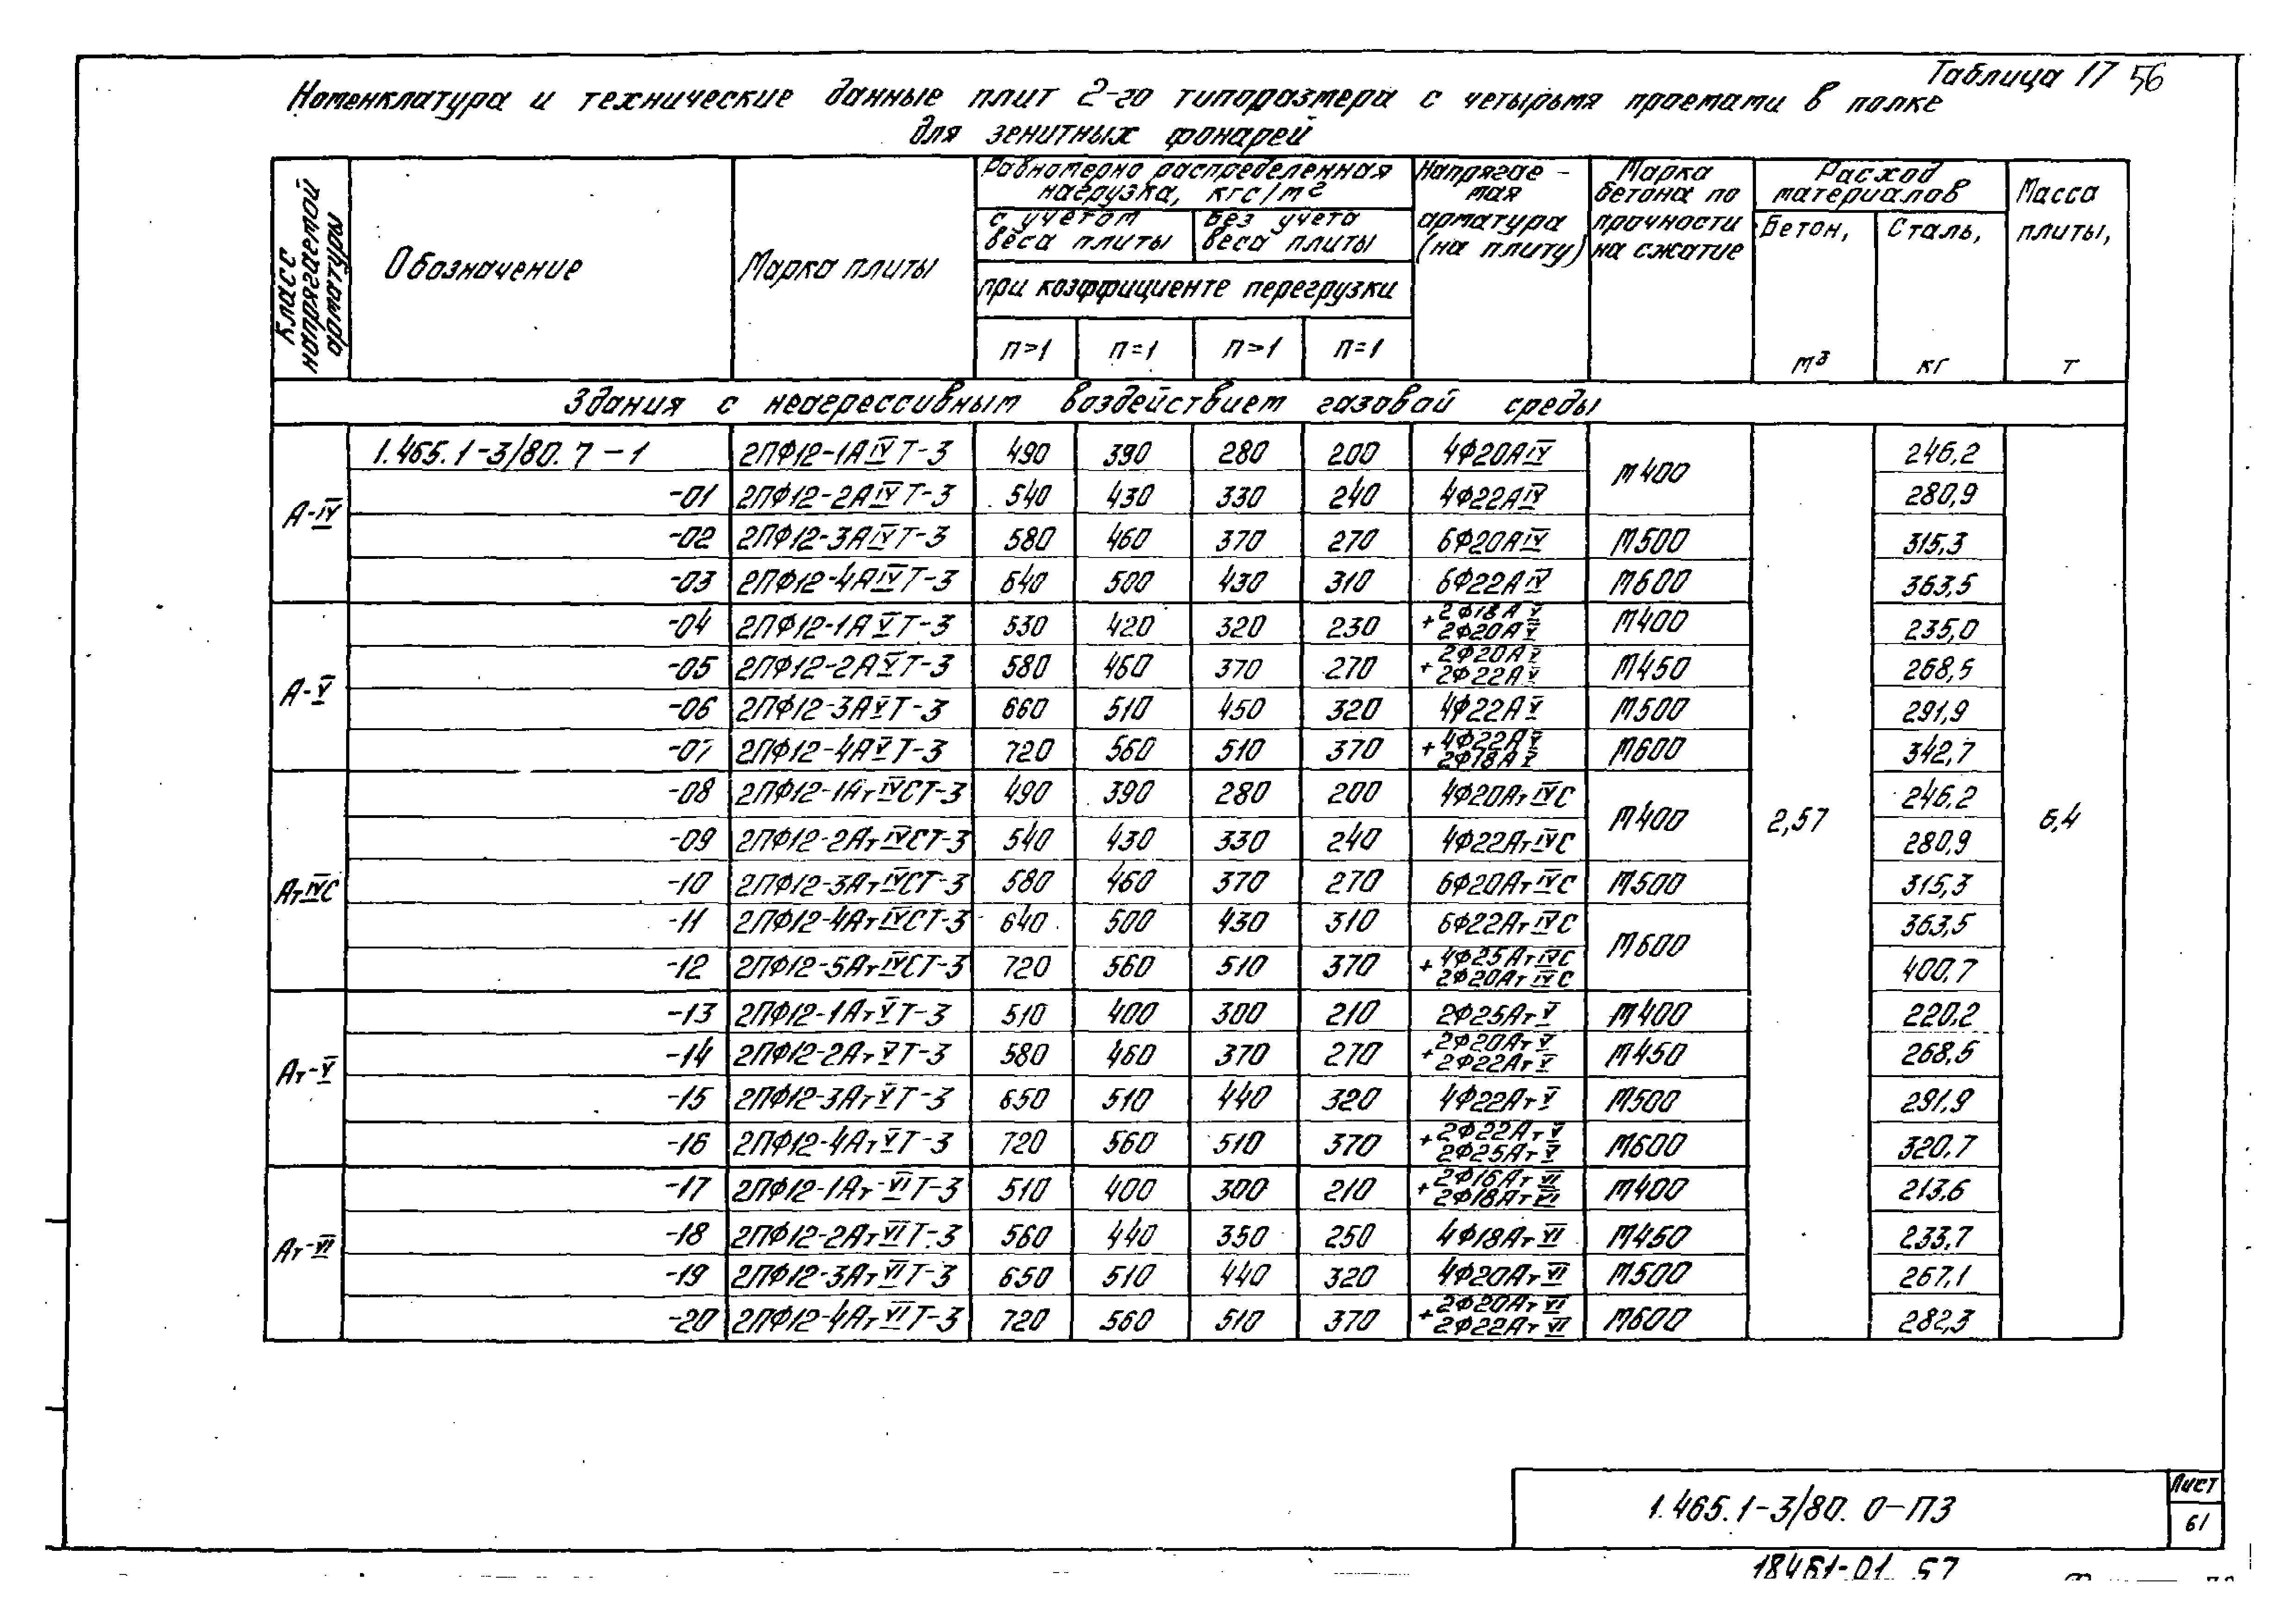 Таблица 17 56
Номенклатура и технические данные плит 2-го типоразмера с четырьмя проемами в полке
для зенитных фонарей
Класс напрягаемой арматуры
Обозначение
Марка плиты
Равномерно распределенная нагрузка, кгс/м²
с учетом веса плиты
без учета веса плиты
при коэффициенте перегрузки
п>1 п=1 п>1 п=1
Напрягае-мая арматура (на плиту)
Марка бетона по прочности на сжатие
Расход материалов
Бетон, м³
Сталь, кг
Масса плиты, т
Здания с неагрессивным воздействием газовой среды
А-IV
1.465.1-3/80.7-1 2ПФ12-1АIVТ-3 490 390 280 200 4Ф20АIV М400 246,2
-01 2ПФ12-2АIVТ-3 540 430 330 240 4Ф22АIV 280,9
-02 2ПФ12-3АIVТ-3 580 460 370 270 6Ф20АIV М500 315,3
-03 2ПФ12-4АIVТ-3 640 500 430 310 6Ф22АIV М600 363,5
А-V
-04 2ПФ12-1АVТ-3 530 420 320 230 2Ф18АV + 2Ф20АV М400 235,0
-05 2ПФ12-2АVТ-3 580 460 370 270 2Ф20АV + 2Ф22АV М450 268,5
-06 2ПФ12-3АVТ-3 660 510 450 320 4Ф22АV М500 291,9
-07 2ПФ12-4АVТ-3 720 560 510 370 4Ф22АV + 2Ф18АV М600 342,7
АтIVС
-08 2ПФ12-1АтIVСТ-3 490 390 280 200 4Ф20АтIVС М400 2,57 246,2 6,4
-09 2ПФ12-2АтIVСТ-3 540 430 330 240 4Ф22АтIVС 280,9
-10 2ПФ12-3АтIVСТ-3 580 460 370 270 6Ф20АтIVС М500 315,3
-11 2ПФ12-4АтIVСТ-3 640 500 430 310 6Ф22АтIVС М600 363,5
-12 2ПФ12-5АтIVСТ-3 720 560 510 370 4Ф25АтIVС + 2Ф20АтIVС 400,7
Ат-V
-13 2ПФ12-1АтVТ-3 510 400 300 210 2Ф25АтV М400 220,2
-14 2ПФ12-2АтVТ-3 580 460 370 270 2Ф20АтV + 2Ф22АтV М450 268,5
-15 2ПФ12-3АтVТ-3 650 510 440 320 4Ф22АтV М500 291,9
-16 2ПФ12-4АтVТ-3 720 560 510 370 2Ф22АтV + 2Ф25АтV М600 320,7
Ат-VI
-17 2ПФ12-1Ат-VIТ-3 510 400 300 210 2Ф16АтVI + 2Ф18АтVI М400 213,6
-18 2ПФ12-2АтVIТ-3 560 440 350 250 4Ф18АтVI М450 233,7
-19 2ПФ12-3АтVIТ-3 650 510 440 320 4Ф20АтVI М500 267,1
-20 2ПФ12-4АтVIТ-3 720 560 510 370 2Ф20АтVI + 2Ф22АтVI М600 282,3
1.465.1-3/80. 0-ПЗ
Лист
61
18461-01 57